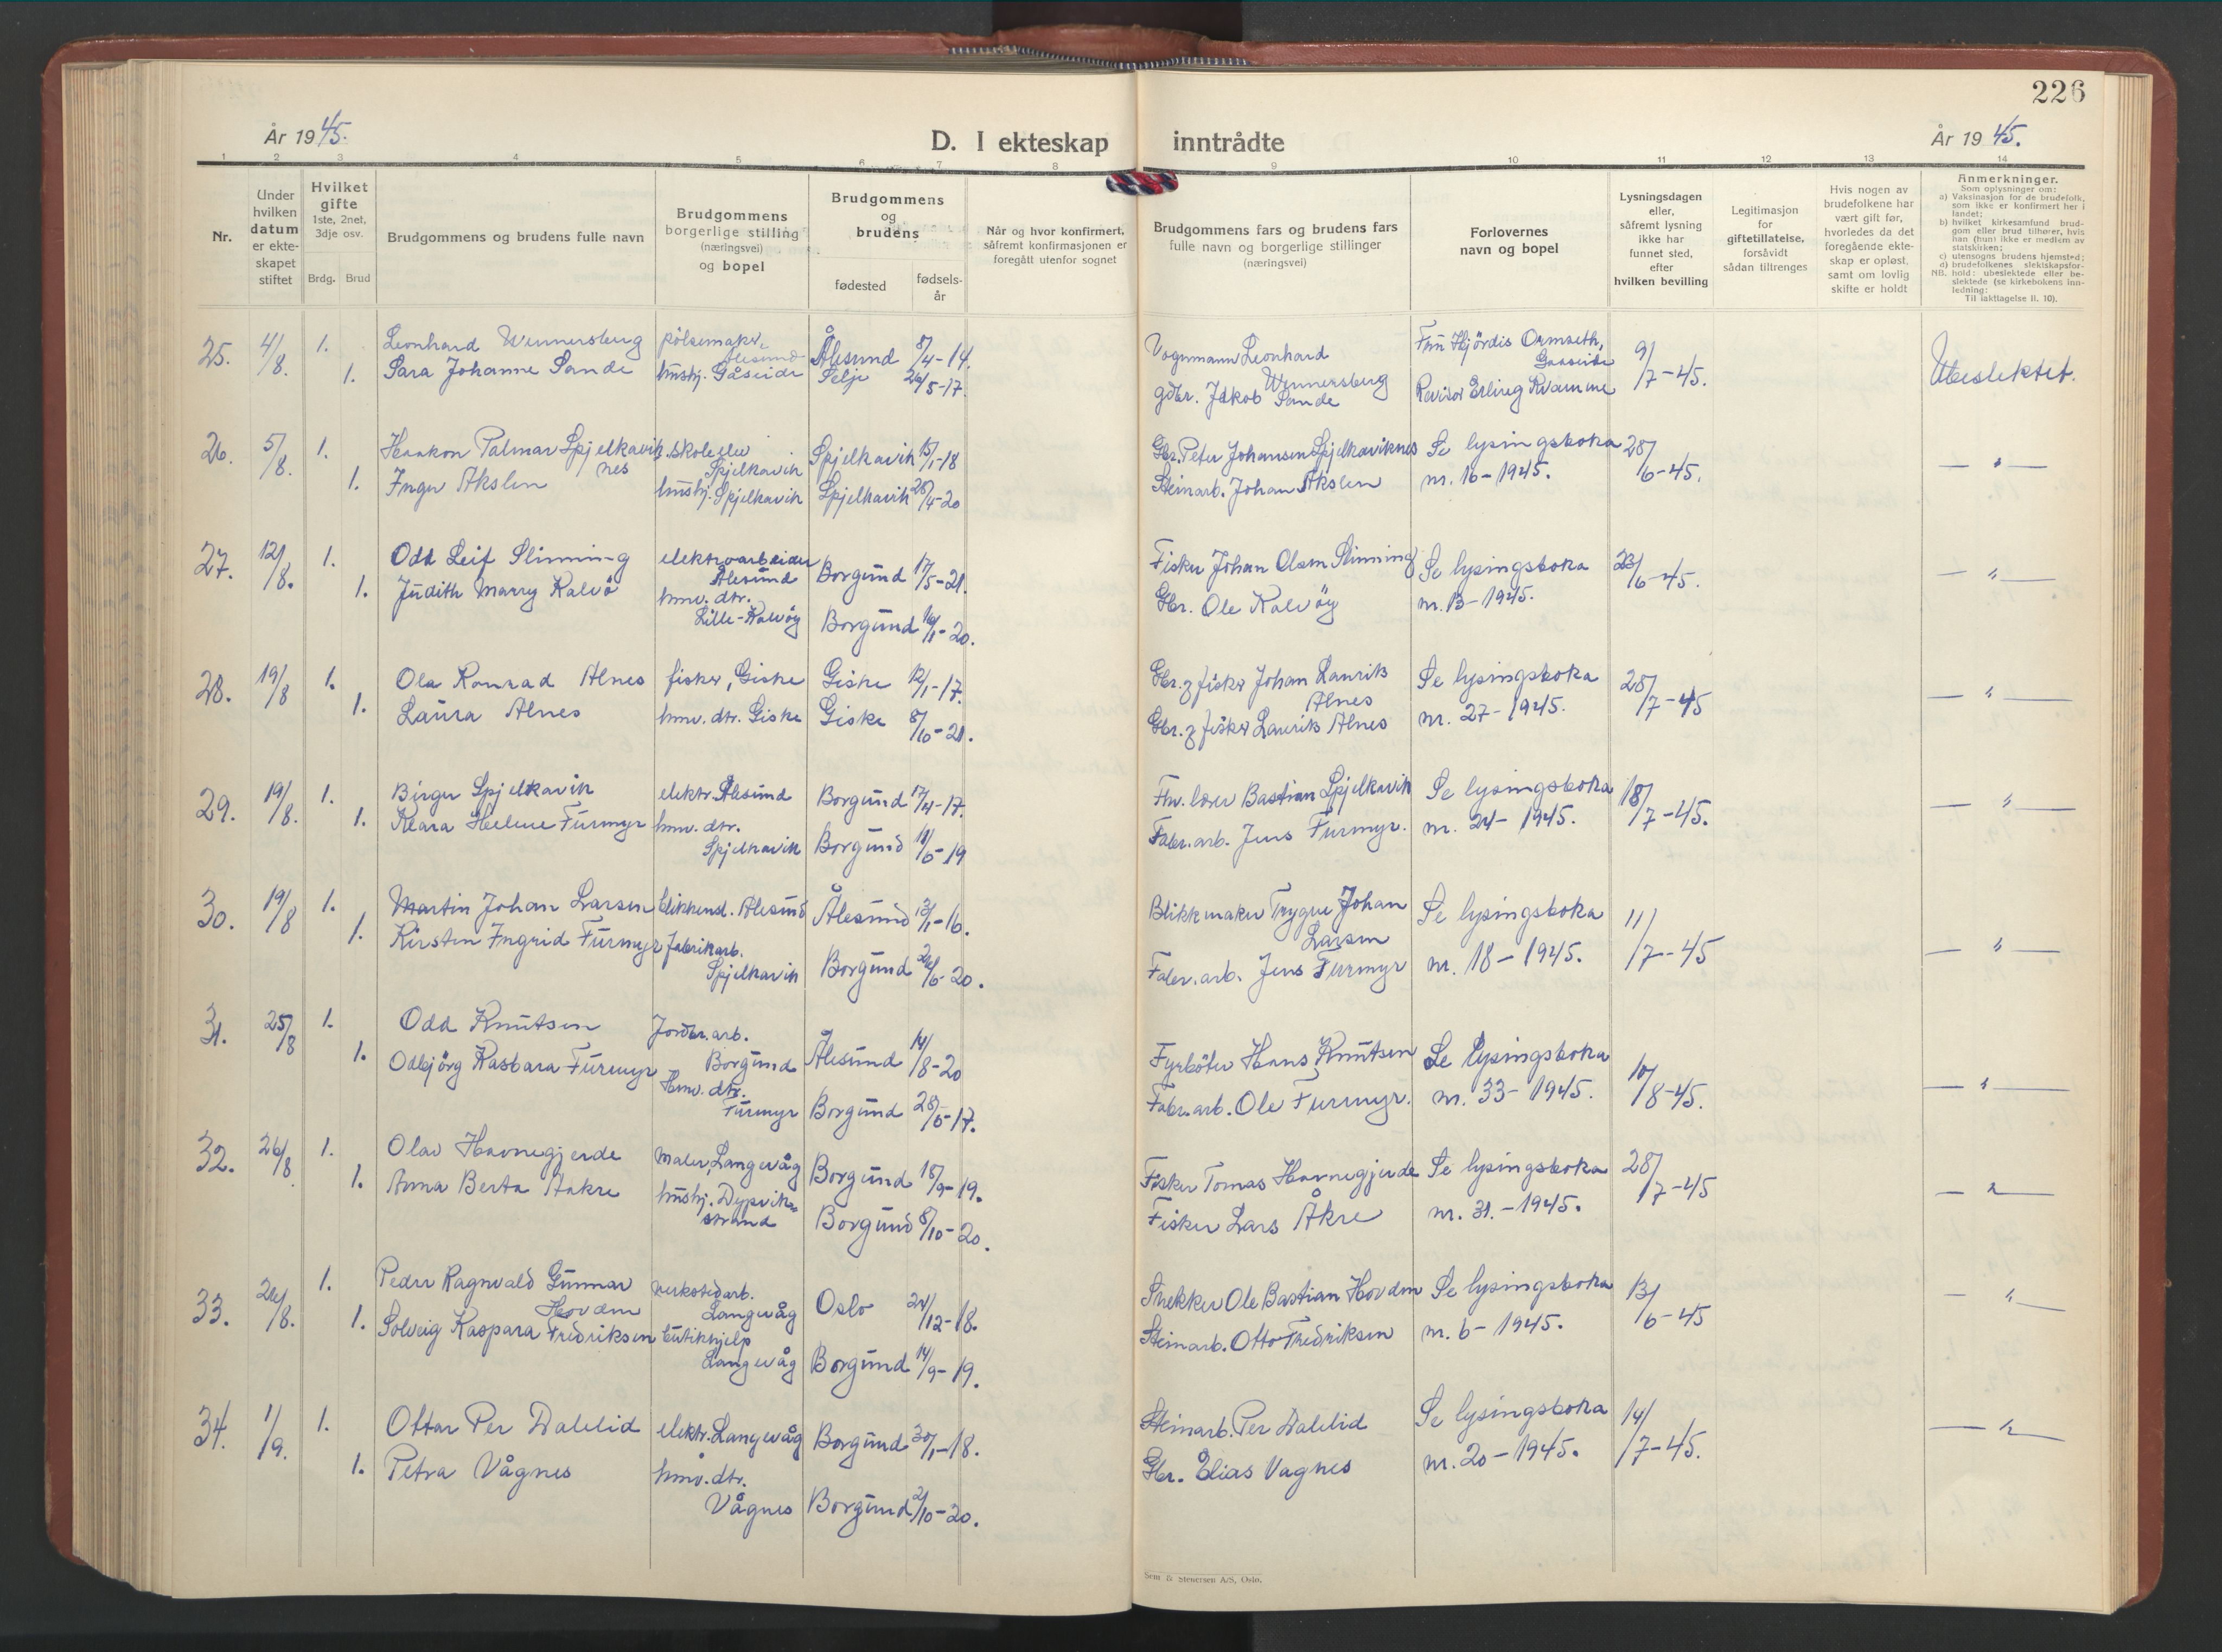 226
År 1945.
D. I ekteskap inntrådte
År 1945.
1 2 3 4 5 6 7 8 9 10 11 12 13 14
Nr.
Under
hvilken
datum
er ekte-
skapet
stiftet
Hvilket
gifte
1ste, 2net,
3dje osv.
Brdg. Brud
Brudgommens og brudens fulle navn
Brudgommens
borgerlige stilling
(næringsvei)
og bopel
Brudgommens
og
brudens
fødested
fødsels-
år
Når og hvor konfirmert,
såfremt konfirmasjonen er
foregått utenfor sognet
Brudgommens fars og brudens fars
fulle navn og borgerlige stillinger
(næringsvei)
Forlovernes
navn og bopel
Lysningsdagen
eller,
såfremt lysning
ikke har
funnet sted,
efter
hvilken bevilling
Legitimasjon
for
giftetillatelse,
forsåvidt
sådan tiltrenges
Hvis nogen av
brudefolkene har
vært gift før,
hvorledes da det
foregående ekte-
skap er opløst,
samt om lovlig
skifte er holdt
Anmerkninger.
Som oplysninger om:
a) Vaksinasjon for de brudefolk,
som ikke er konfirmert her i
landet;
b) hvilket kirkesamfund brud-
gom eller brud tilhører, hvis
han (hun) ikke er medlem av
statskirken;
c) utensogns brudens hjemsted;
d) brudefolkenes slektskapsfor-
hold: ubeslektede eller be-
slektede (se kirkebokens inn-
ledning:
NB. Til iakttagelse II. 10).
25. 4/8. 1. Leonhard Wennersberg pølsemaker, Ålesund Ålesund 8/4-14.
1. Sara Johanne Sande hushj. Gåseide Selje 26/5-17.
Vognmann Leonhard
Wennersberg
gdbr. Jakob Sande
Fru Hjördis Ormseth,
Gåseide
Revisor Erling Kvamme
9/7-45.
Ubeslektet.
26. 5/8. 1. Haakon Palmar Spjelkavik-
nes
skoleelev
Spjelkavik
Spjelkavik 15/1-18
1. Inger Akslen hushj. Spjelkavik Spjelkavik 28/4-20
Gbr. Peter Johansen Spjelkaviknes
Steinarb. Johan Akslen
Se lysingsboka
nr. 16-1945.
28/6-45.
— " —
27. 12/8. 1. Odd Leif Slinning elektroarbeider
Ålesund
Borgund 17/5-21.
1. Judith Marry Kalvö hmv. dtr.
Lille-Kalvöy
Borgund 16/1-20.
Fisker Johan Olsen Slinning
Gbr. Ole Kalvöy
Se lysingsboka
nr. 13-1945.
23/6-45.
— " —
28. 19/8 1. Ola Konrad Alnes fisker, Giske Giske 12/1-17.
1. Laura Alnes hmv. dtr. Giske Giske 8/10-21.
Gbr. og fisker Johan Laurits
Alnes
Gbr. og fisker Laurits Alnes
Se lysingsboka
nr. 27-1945.
28/7-45
— " —
29. 19/8. 1. Birger Spjelkavik elektr. Ålesund Borgund 17/4-17.
1. Klara Helene Furmyr hmv. dtr.
Spjelkavik
Borgund 11/6-19
Fhv. lærer Bastian Spjelkavik
Fabr. arb. Jens Furmyr.
Se lysingsboka
nr. 24-1945.
18/7-45.
— " —
30. 19/8 1. Martin Johan Larsen blikkensl. Ålesund Ålesund 13/1-16.
1. Kirsten Ingrid Furmyr fabrikarb.
Spjelkavik
Borgund 26/6-20.
Blikkmaker Trygve Johan
Larsen
Fabr. arb. Jens Furmyr
Se lysingsboka
nr. 18-1945.
11/7-45
— " —
31. 25/8 1. Odd Knutsen Jordbr. arb.
Borgund
Ålesund 14/8-20
1. Odbjörg Kasbara Furmyr Hmv. dtr.
Furmyr
Borgund 28/5-17.
Fyrböter Hans Knutsen
Fabr. arb. Ole Furmyr.
Se lysingsboka
nr. 33-1945.
10/8-45.
— " —
32. 26/8 1. Olav Havnegjerde Maler, Langevåg Borgund 18/9-19.
1. Anna Berta Aakre hushj. Dypvik-
strand
Borgund 8/10-20.
Fisker Tomas Havnegjerde
Fisker Lars Åkre
Se lysingsboka
nr. 31.-1945.
28/7-45
— " —
33. 26/8. 1. Peder Ragnvald Gunnar
Hovden
verkstedarb.
Langevåg
Oslo 24/12-18.
1. Solveig Kaspara Fredriksen butikhjelp
Langevåg
Borgund 14/9-19.
Snekker Ole Bastian Hovden
Steinarb. Otto Fredriksen
Se lysingsboka
nr. 6-1945.
13/6-45
— " —
34. 1/9. 1. Ottar Per Dalelid elektr. Langevåg Borgund 30/1-18.
1. Petra Vågnes hmv. dtr.
Vågnes
Borgund 2/10-20.
Steinarb. Per Dalelid
Gbr. Elias Vagnes
Se lysingsboka
nr. 20-1945.
14/7-45.
— " —
Sem & Stenersen A/S, Oslo.